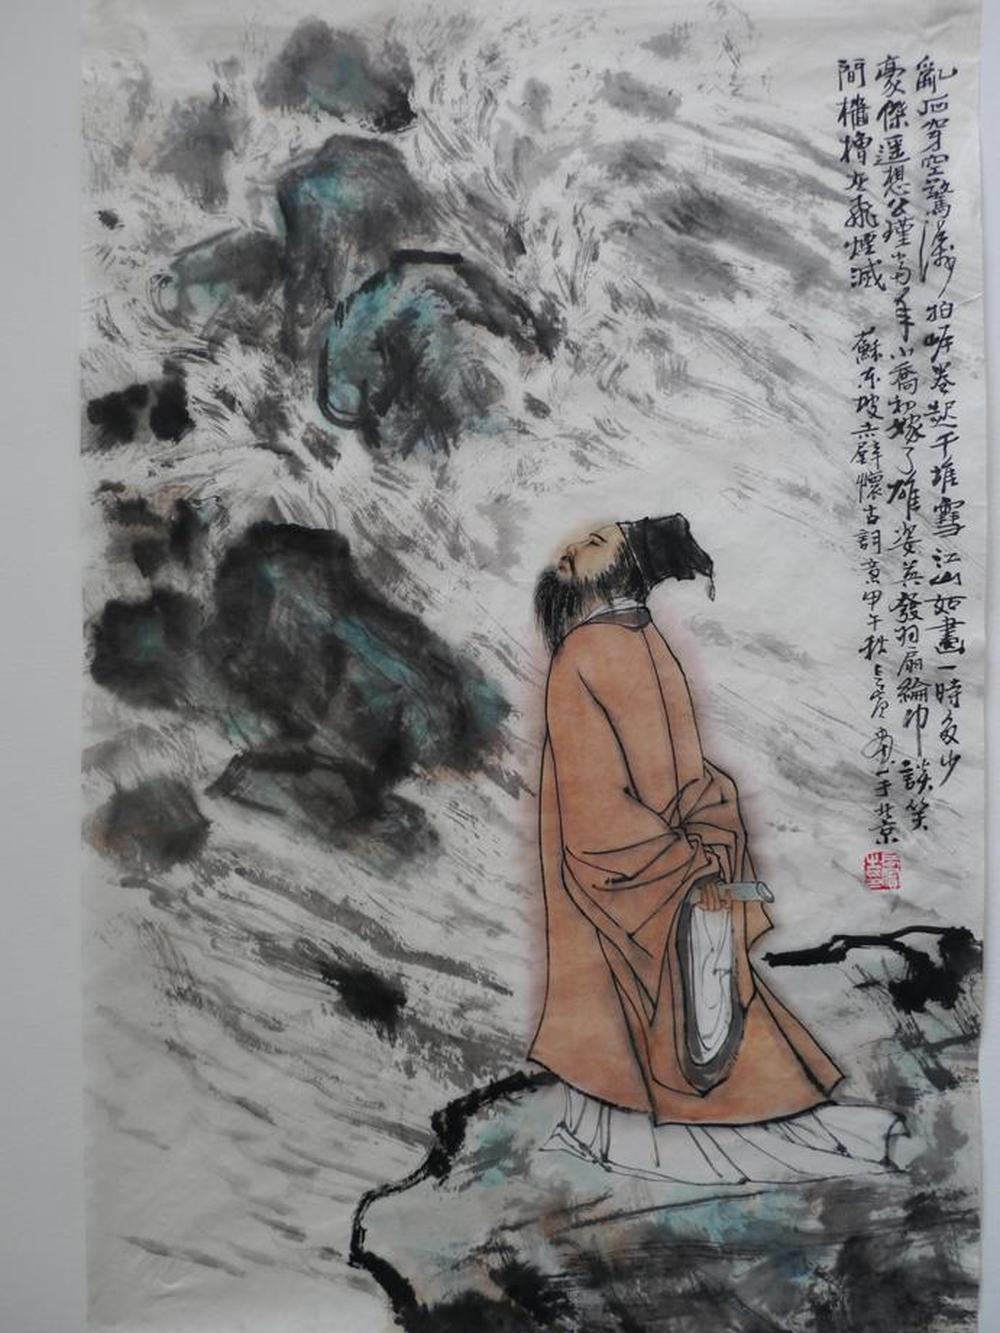 亂石穿空驚濤拍岸卷起千堆雪江山如畫一時多少
豪傑遥想公瑾當年小喬初嫁了雄姿英發羽扇綸巾談笑
間檣櫓灰飛煙滅
蘇東坡赤壁懷古詞意甲午秋 畫于北京